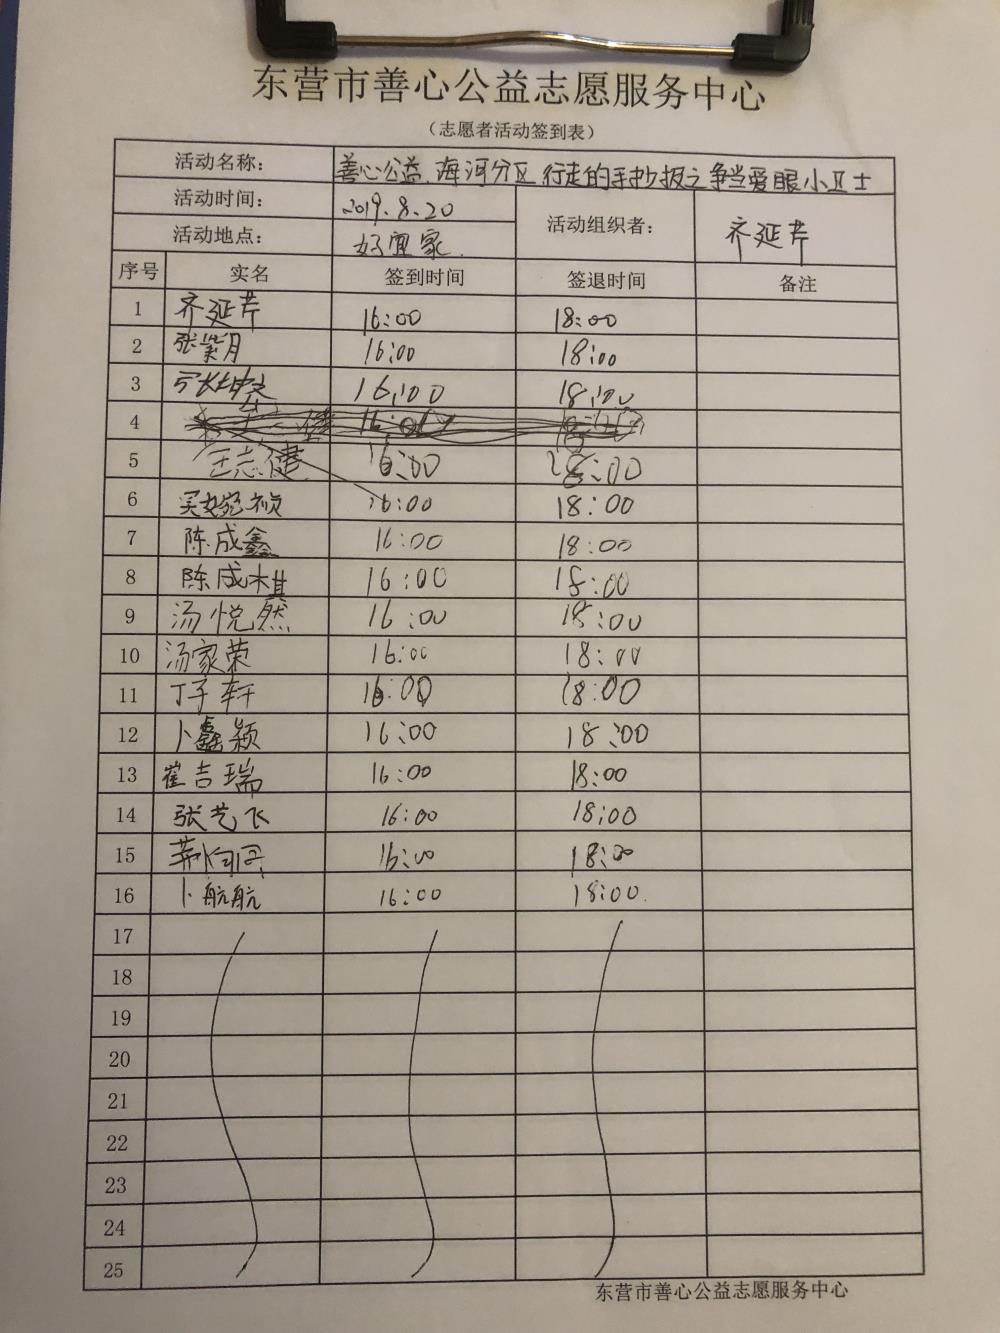 东营市善心公益志愿服务中心
（志愿者活动签到表）
活动名称： 善心公益.海河分区 行走的手抄报之争当爱眼小卫士
活动时间： 2019.8.20 活动组织者： 齐延芹
活动地点： 好宜家.
序号 实名 签到时间 签退时间 备注
1 齐延芹 16:00 18:00
2 张紫月 16:00 18:00
3 16:00 18:00
4
5 王志健 16:00 18:00
6 16:00 18:00
7 陈成鑫 16:00 18:00
8 陈成棋 16:00 18:00
9 汤悦然 16:00 18:00
10 汤家荣 16:00 18:00
11 丁子轩 16:00 18:00
12 卜鑫颖 16:00 18:00
13 崔吉瑞 16:00 18:00
14 张艺飞 16:00 18:00
15 16:00 18:00
16 卜航航 16:00 18:00.
17
18
19
20
21
22
23
24
25
东营市善心公益志愿服务中心